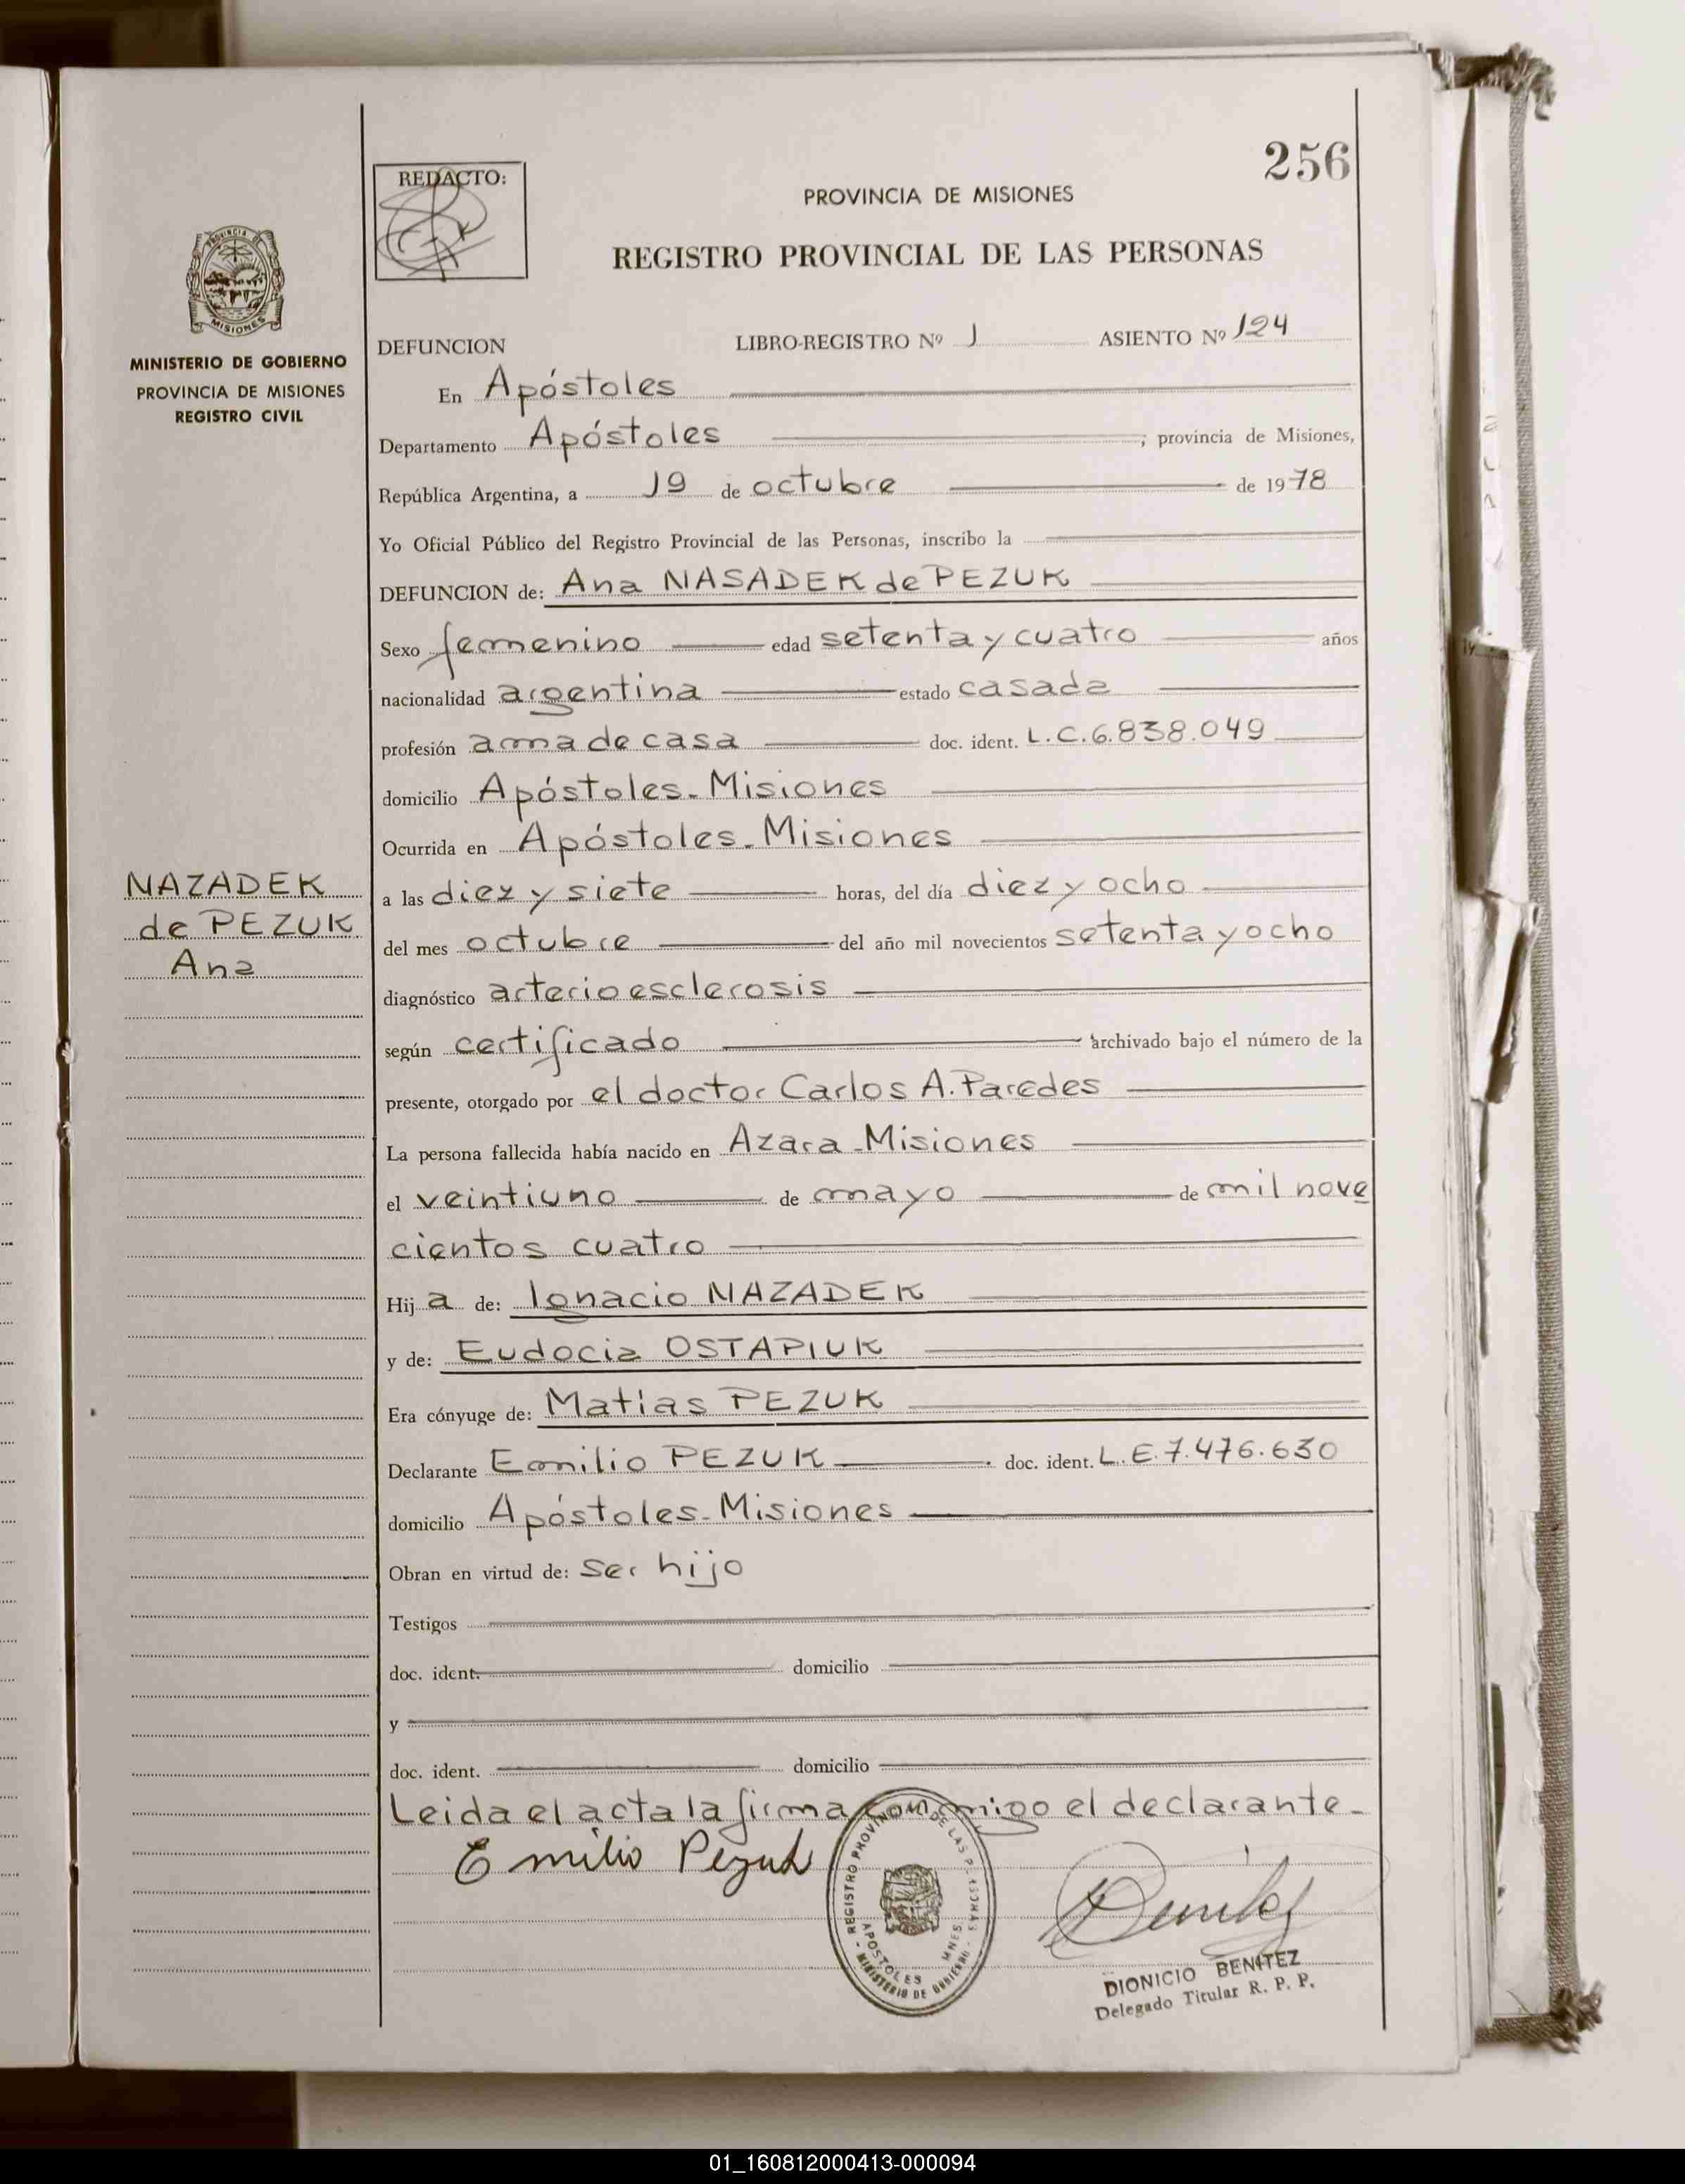 256
REDACTO:
PROVINCIA DE MISIONES
REGISTRO PROVINCIAL DE LAS PERSONAS
PROVINCIA DE
MISIONES
MINISTERIO DE GOBIERNO
PROVINCIA DE MISIONES
REGISTRO CIVIL
DEFUNCION LIBRO-REGISTRO Nº 1 ASIENTO Nº 124
En Apóstoles
Departamento Apóstoles ; provincia de Misiones,
República Argentina, a 19 de octubre de 1978
Yo Oficial Público del Registro Provincial de las Personas, inscribo la
DEFUNCION de: Ana NASADEK de PEZUK
Sexo femenino edad setenta y cuatro años
nacionalidad argentina estado casada
profesión ama de casa doc. ident. L.C.6.838.049
domicilio Apóstoles-Misiones
Ocurrida en Apóstoles-Misiones
NAZADEK
de PEZUK
Ana
a las diez y siete horas, del día diez y ocho
del mes octubre del año mil novecientos setenta y ocho
diagnóstico arterioesclerosis
según certificado archivado bajo el número de la
presente, otorgado por el doctor Carlos A. Paredes
La persona fallecida había nacido en Azara-Misiones
el veintiuno de mayo de mil nove
cientos cuatro
Hija de: Ignacio NAZADEK
y de: Eudocia OSTAPIUK
Era cónyuge de: Matias PEZUK
Declarante Emilio PEZUK doc. ident. L.E.7.476.630
domicilio Apóstoles-Misiones
Obran en virtud de: ser hijo
Testigos
doc. ident. domicilio
y
doc. ident. domicilio
Leida el acta la firma conmigo el declarante-
Emilio Pezuk
REGISTRO PROVINCIAL DE LAS PERSONAS
APOSTOLES MNES.
MINISTERIO DE GOBIERNO
DIONICIO BENITEZ
Delegado Titular R. P. P.
01_160812000413-000094